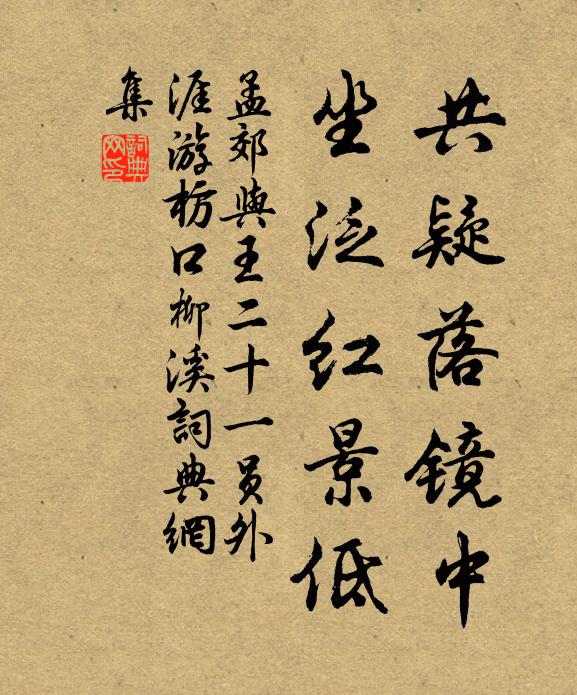 共疑落镜中
坐泛红景低
孟郊與王二十一员外
涯游枋口柳溪詞典網
集
詞典
网印